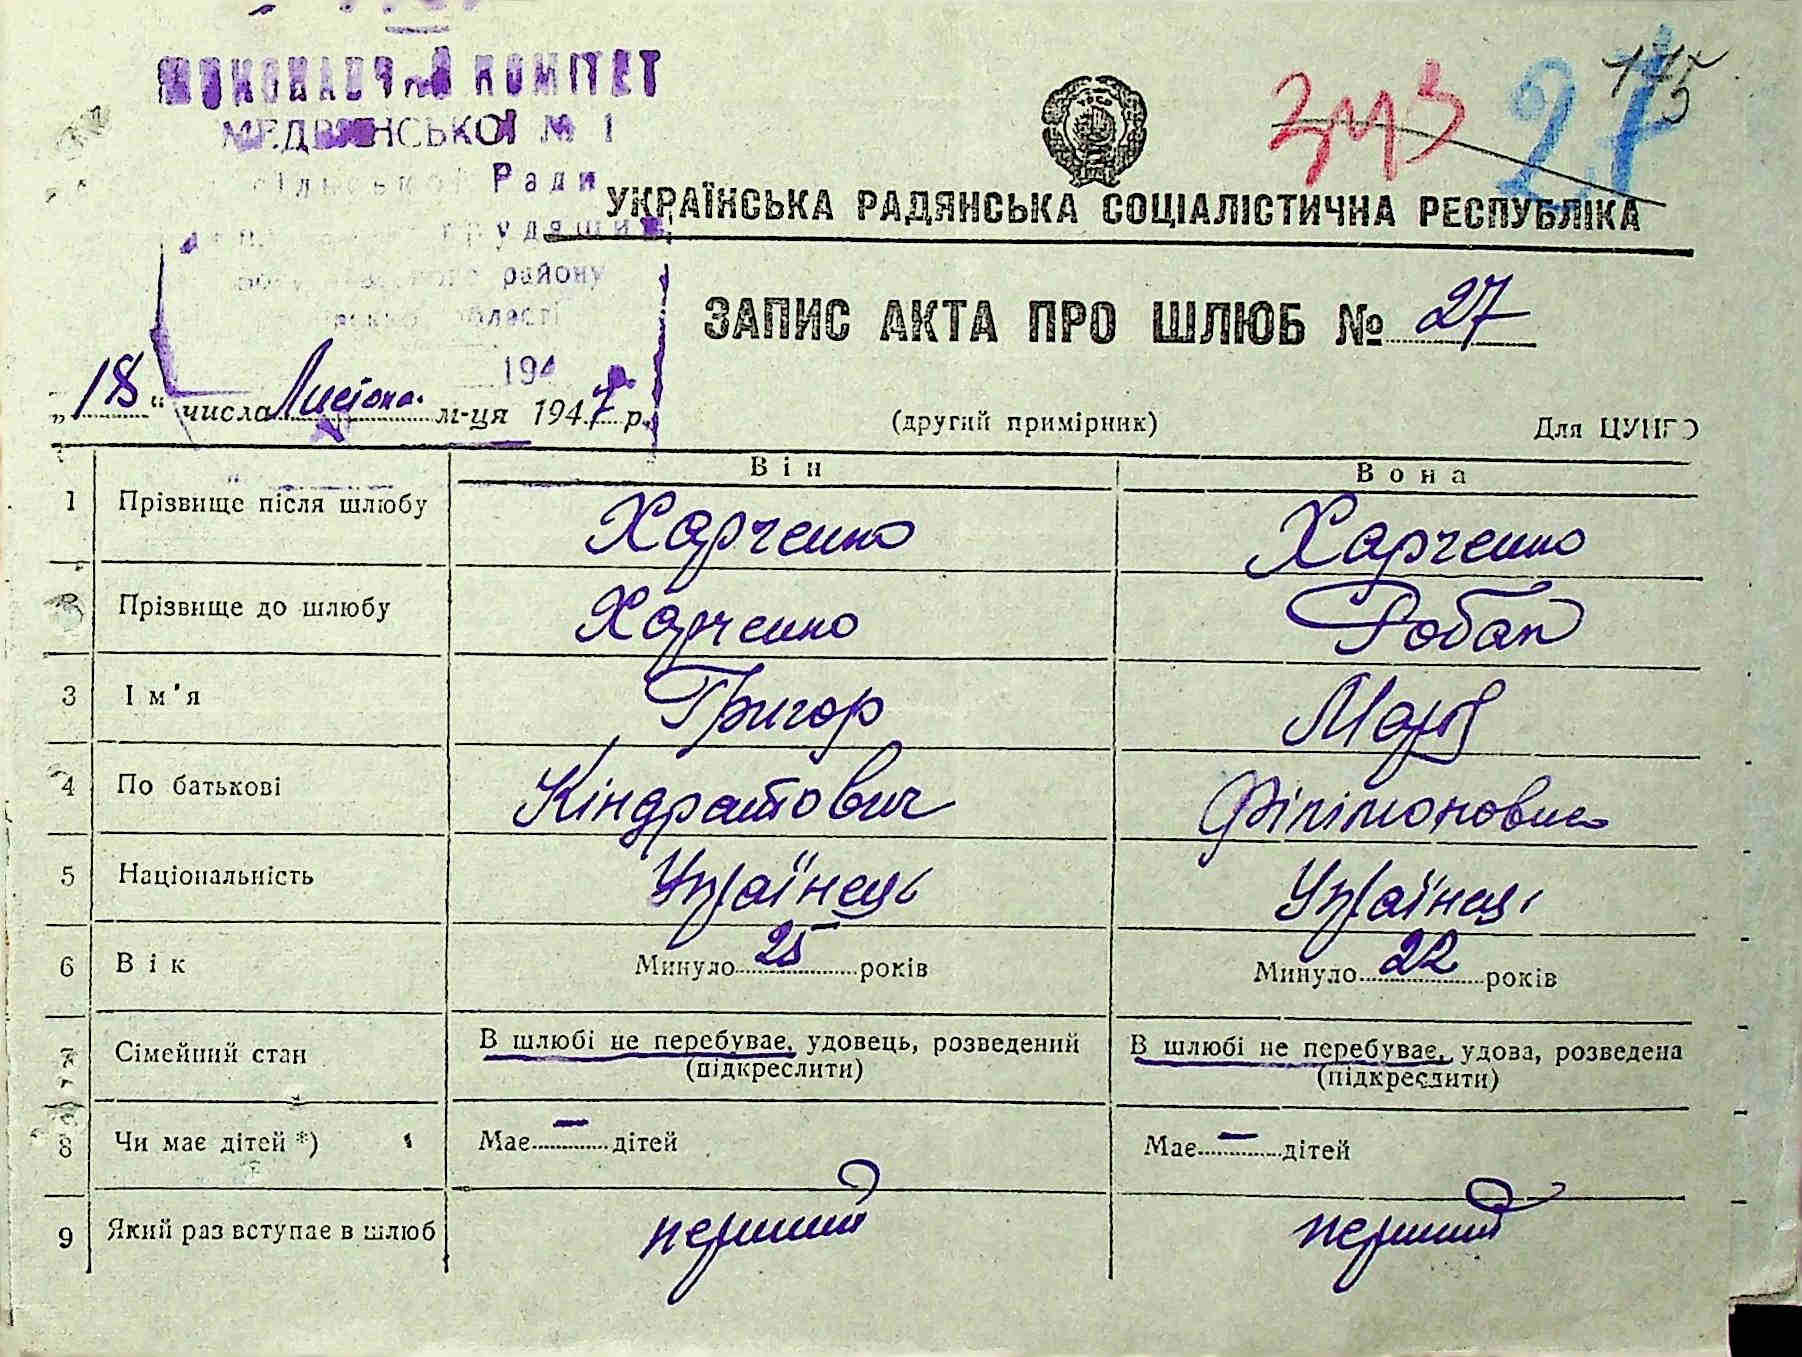 ВИКОНАВЧИЙ КОМІТЕТ
МЕДВИНСЬКОЇ № 1
сільської Ради
трудящих
району
області
194
343
27
175
УКРАЇНСЬКА РАДЯНСЬКА СОЦІАЛІСТИЧНА РЕСПУБЛІКА
ЗАПИС АКТА ПРО ШЛЮБ № 27
„18“ числа Листопа. м-ця 1947 р.
(другий примірник)
Для ЦУНГО
Він
Вона
1 Прізвище після шлюбу Харченко Харченко
2 Прізвище до шлюбу Харченко Робак
3 Ім'я Григор Марія
4 По батькові Кіндратович Філімоновна
5 Національність Українець Українець
6 Вік Минуло 25 років Минуло 22 років
7 Сімейний стан В шлюбі не перебуває, удовець, розведений В шлюбі не перебуває, удова, розведена
(підкреслити) (підкреслити)
8 Чи має дітей *) Має — дітей Має — дітей
9 Який раз вступає в шлюб перший перший